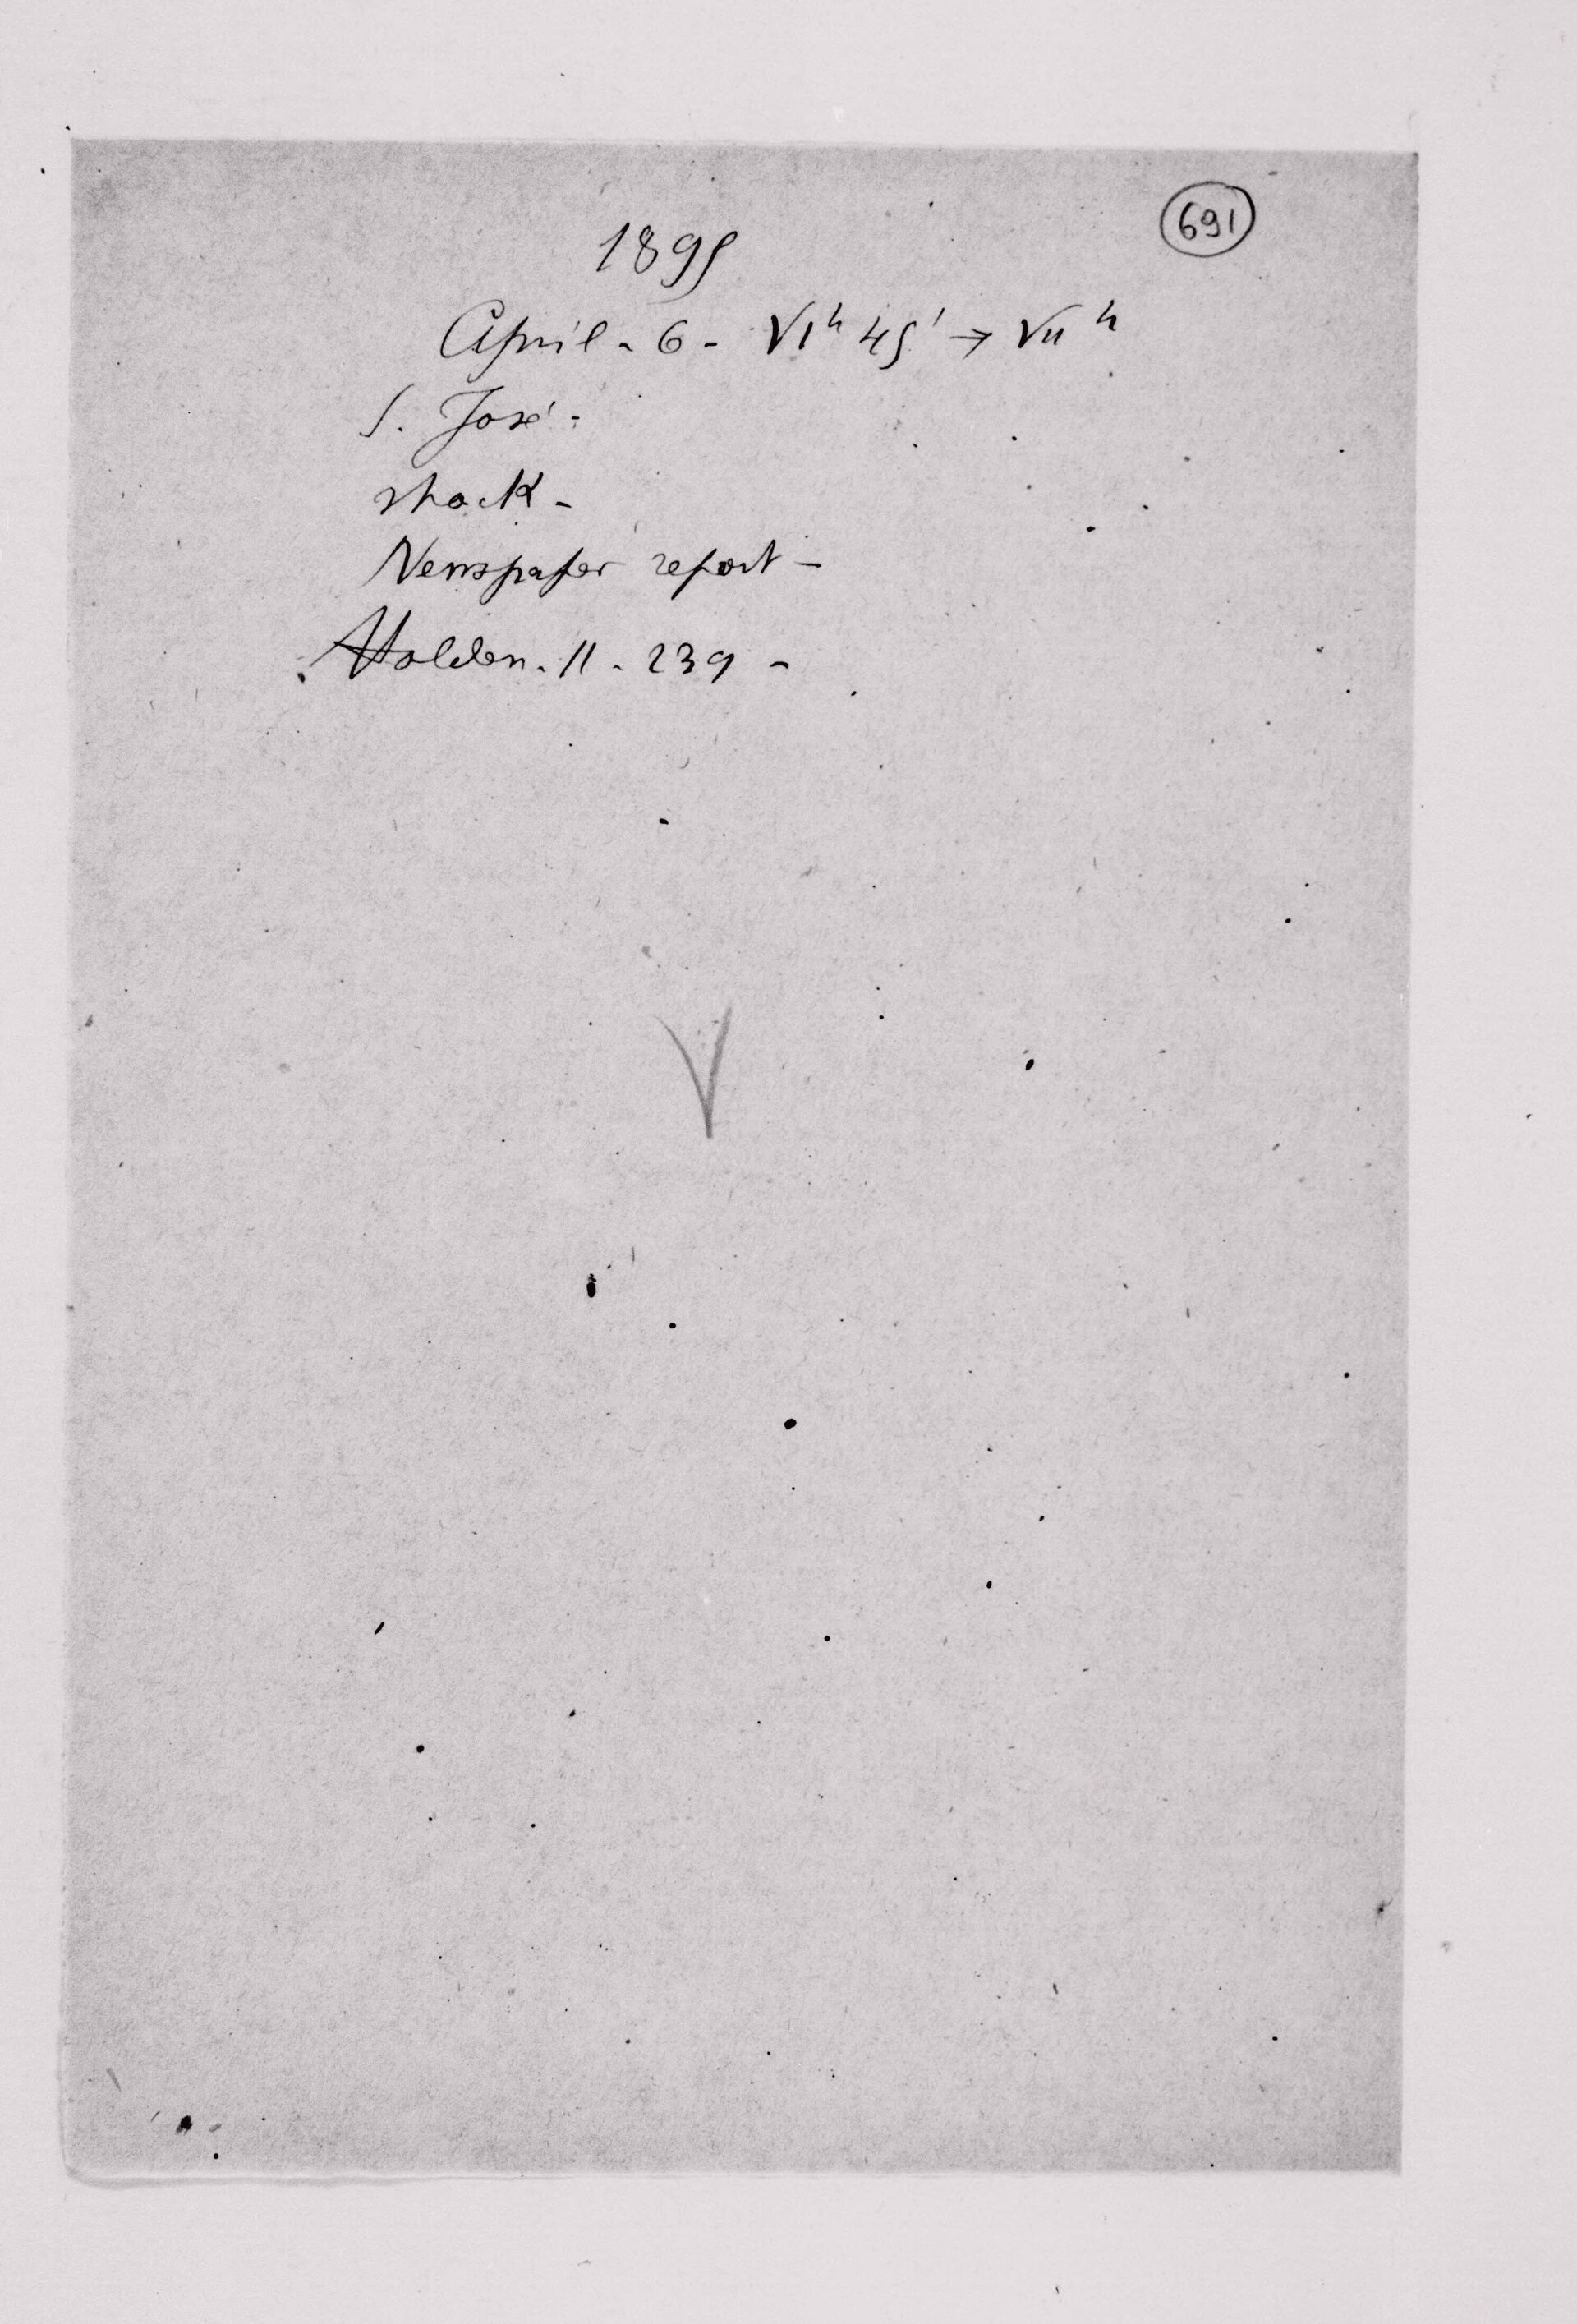 691
1895
April - 6 - VIʰ 45' → VIIʰ
S. José -
shock -
Newspaper report -
Holden. 11 - 239 -
V